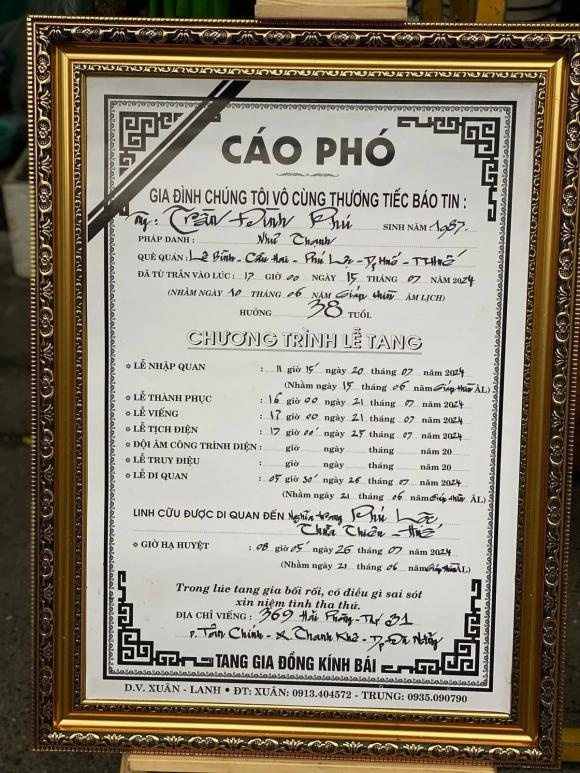 CÁO PHÓ
GIA ĐÌNH CHÚNG TÔI VÔ CÙNG THƯƠNG TIẾC BÁO TIN :
Trần Đình Phú SINH NĂM : 1987.
PHÁP DANH : Như Thanh
QUÊ QUÁN : Lê Bình - Cầu Hai - Phú Lộc - Tp Huế - TT Huế
ĐÃ TỪ TRẦN VÀO LÚC : 17 GIỜ 00 NGÀY 15 THÁNG 07 NĂM 2024
(NHẰM NGÀY 10 THÁNG 06 NĂM Giáp Thìn ÂM LỊCH)
HƯỞNG 38 TUỔI.
CHƯƠNG TRÌNH LỄ TANG
LỄ NHẬP QUAN : 11 giờ 15 ngày 20 tháng 07 năm 2024
(Nhằm ngày 15 tháng 06 năm Giáp Thìn ÂL)
LỄ THÀNH PHỤC : 16 giờ 00 ngày 21 tháng 07 năm 2024
LỄ VIẾNG : 17 giờ 00 ngày 21 tháng 07 năm 2024
LỄ TỊCH ĐIỆN : 17 giờ 00 ngày 25 tháng 07 năm 2024
ĐỘI ÂM CÔNG TRÌNH DIỆN : giờ ngày tháng năm 20
LỄ TRUY ĐIỆU : giờ ngày tháng năm 20
LỄ DI QUAN : 05 giờ 30 ngày 26 tháng 07 năm 2024
(Nhằm ngày 21 tháng 06 năm Giáp Thìn ÂL)
LINH CỮU ĐƯỢC DI QUAN ĐẾN Nghĩa trang Phú Lộc
Thừa Thiên - Huế
GIỜ HẠ HUYỆT : 08 giờ 05 ngày 26 tháng 07 năm 2024
(Nhằm ngày 21 tháng 06 năm Giáp Thìn ÂL)
Trong lúc tang gia bối rối, có điều gì sai sót
xin niệm tình tha thứ.
ĐỊA CHỈ VIẾNG : 369 Hải Phòng - Tổ 31
P. Tân Chính - Q. Thanh Khê - Tp Đà Nẵng
TANG GIA ĐỒNG KÍNH BÁI
D.V. XUÂN - LANH • ĐT: XUÂN: 0913.404572 - TRUNG: 0935.090790